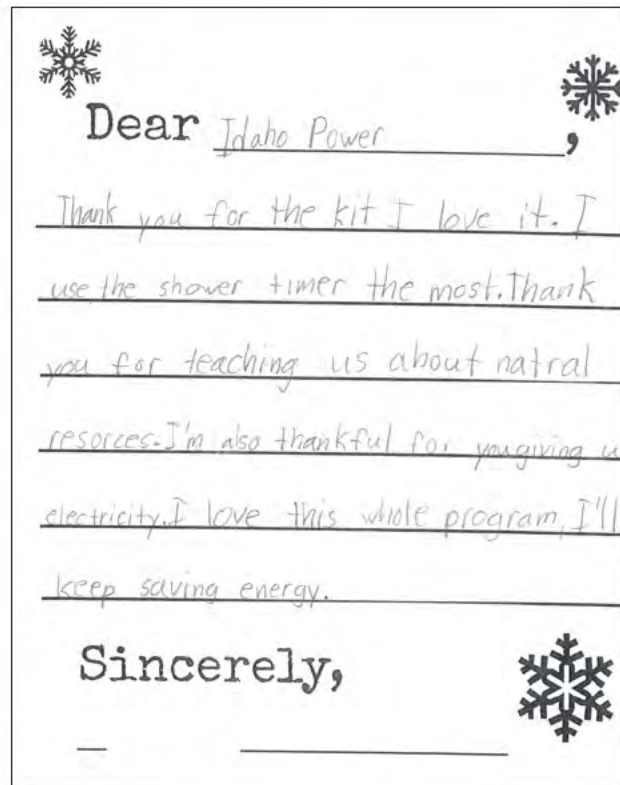 Dear Idaho Power,
Thank you for the kit I love it. I
use the shower timer the most. Thank
you for teaching us about natral
resorces. I'm also thankful for you giving u
electricity. I love this whole program, I'll
keep saving energy.
Sincerely,